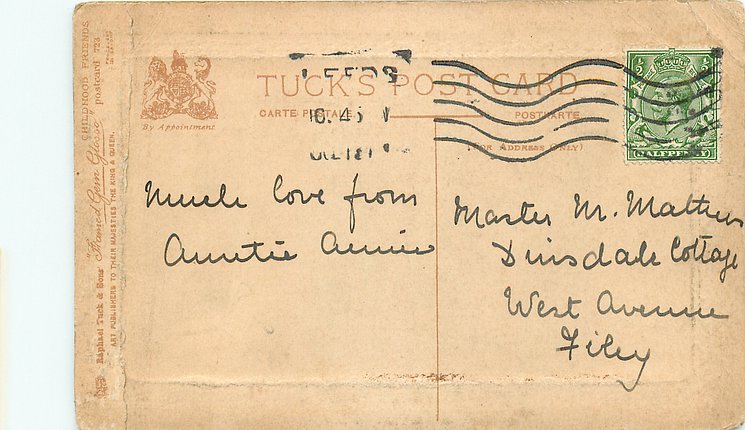 LEEDS
TUCK'S POST CARD
CARTE POSTALE
POSTKARTE
(FOR ADDRESS ONLY)
By Appointment
½
½
HALFPENNY
CHILDHOOD FRIENDS
Raphael Tuck & Sons' "Framed Gem Glosso" postcard 723
ART PUBLISHERS TO THEIR MAJESTIES THE KING & QUEEN.
Much love from
Auntie Annie
Master M. Mathews
Dinsdale Cottage
West Avenue
Filey